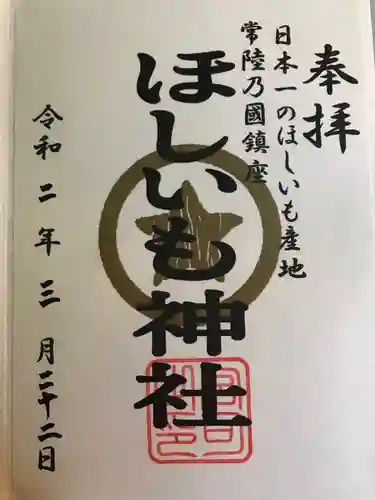 奉拝
日本一のほしいも産地
常陸乃國鎮座
ほしいも神社
令和二年三月二十二日